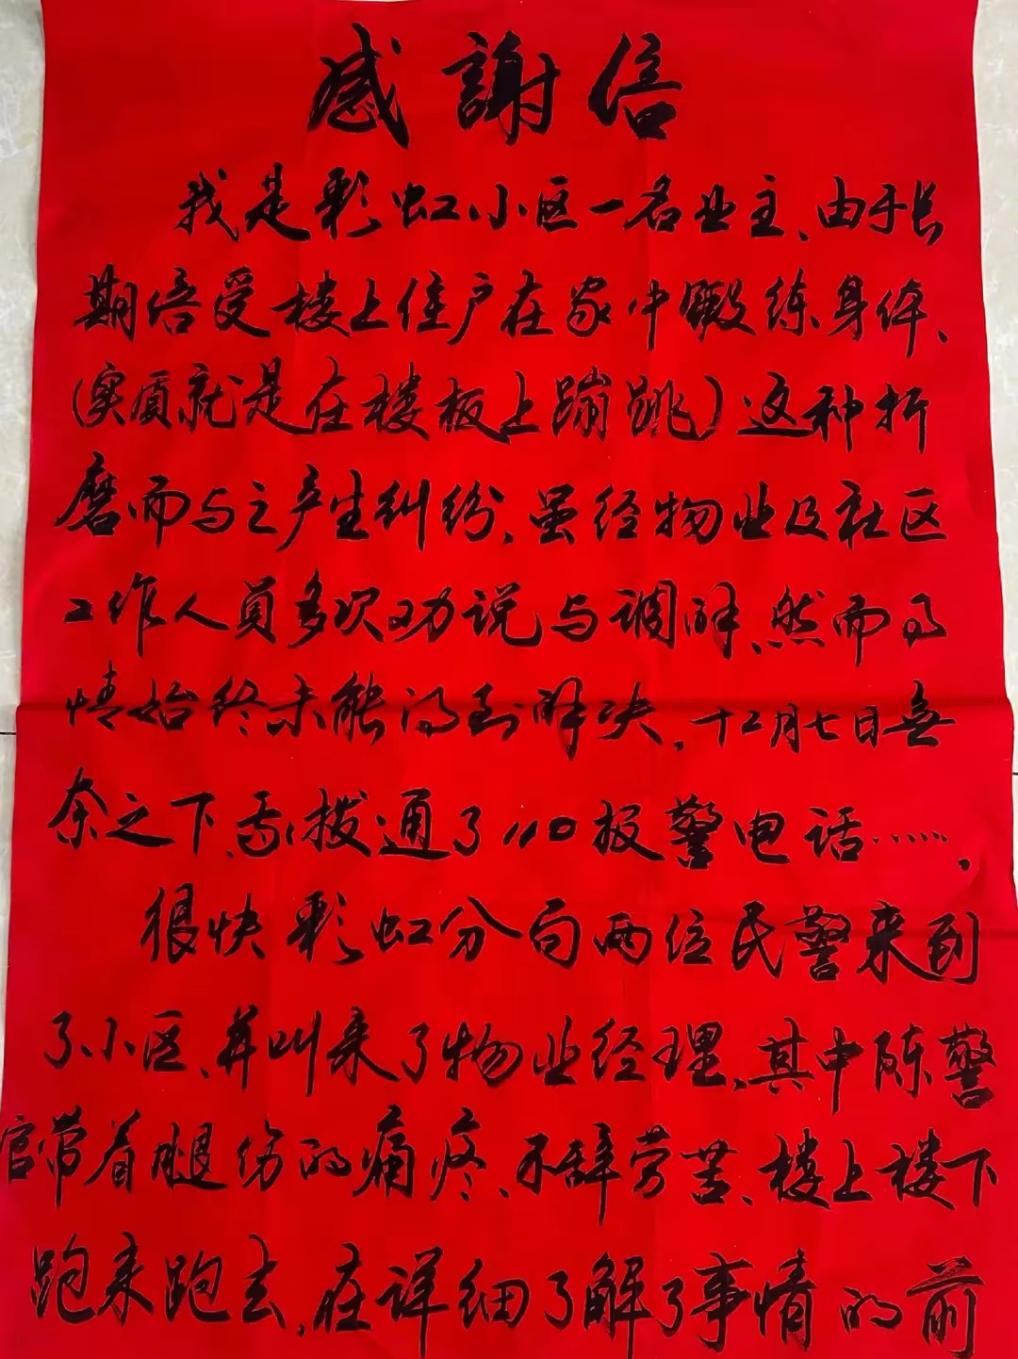 感謝信
我是彩虹小区一名业主、由于长
期倍受楼上住户在家中锻练身体、
(实质就是在楼板上蹦跳)这种折
磨而与之产生纠纷、虽经物业及社区
工作人员多次劝说与调解、然而事
情始终未能得到解决，十二月七日无
奈之下、我拨通了110报警电话……，
很快彩虹分局两位民警来到
了小区、并叫来了物业经理、其中陈警
官带着腿伤的痛疼、不辞劳苦、楼上楼下
跑来跑去，在详细了解了事情的前